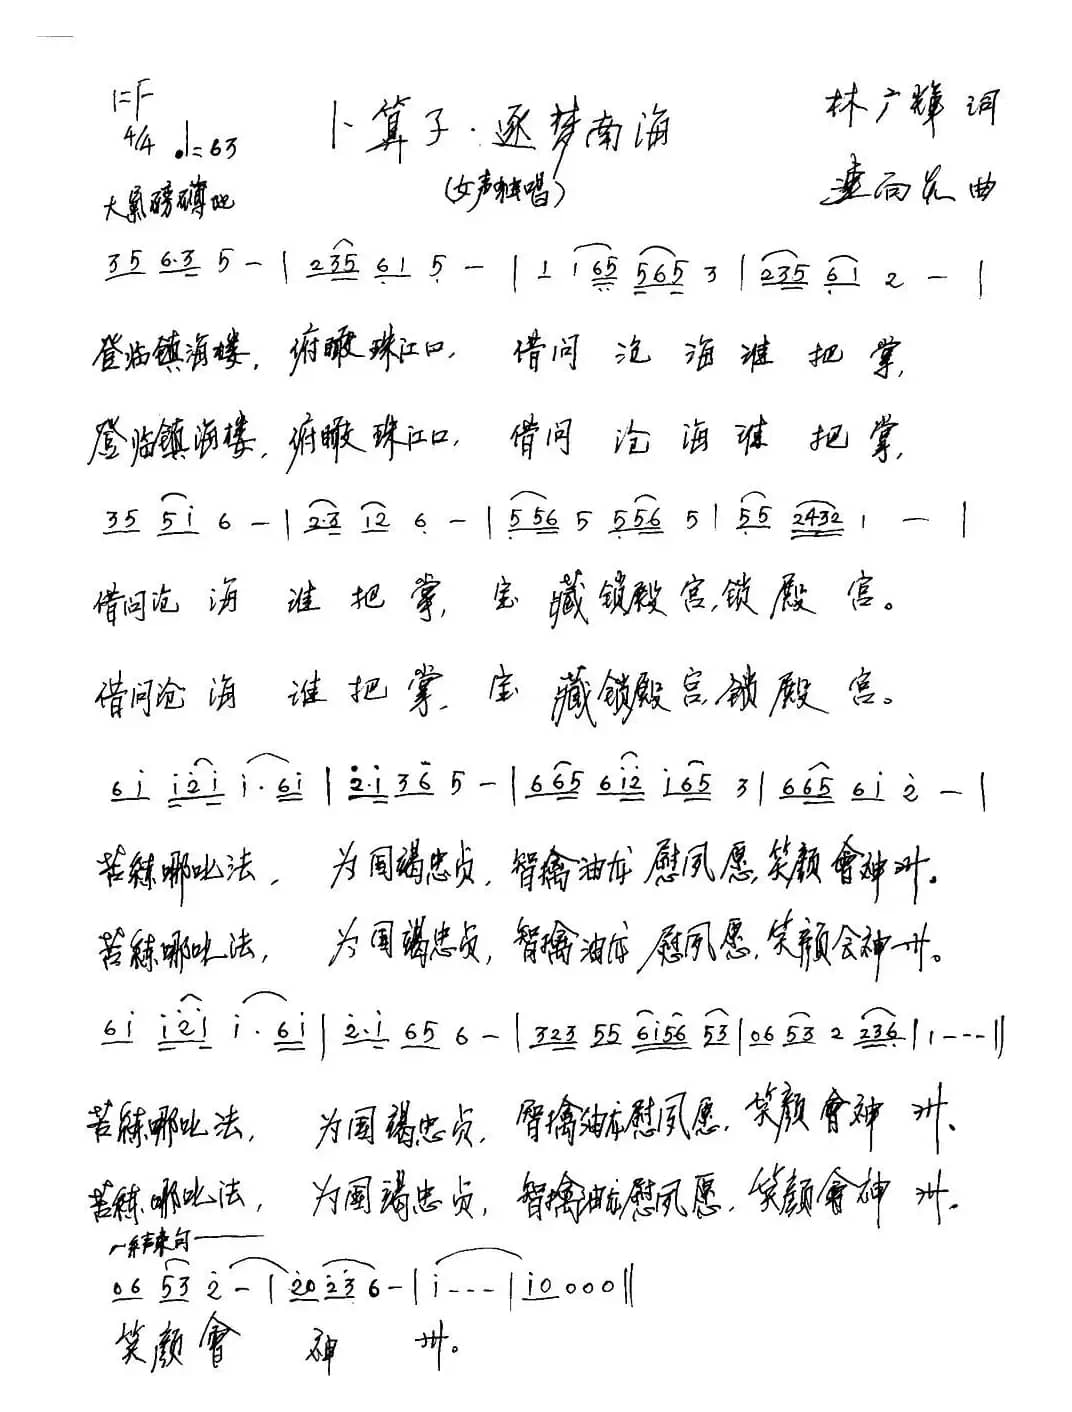 1=F
4/4 ♩=63
卜算子·逐梦南海
林广辉 词
(女声独唱)
连向先 曲
大气磅礴地
35 6·3 5 - | 235 61 5 - | 1 165 565 3 | 235 61 2 - |
登临镇海楼，俯瞰珠江口， 借问 沧 海 谁 把 掌，
登临镇海楼，俯瞰珠江口， 借问 沧 海 谁 把 掌，
35 5i 6 - | 2·3 12 6 - | 556 5 556 5 | 55 2432 1 - |
借问沧 海 谁 把 掌，宝 藏锁殿宫，锁殿 宫。
借问沧 海 谁 把 掌，宝 藏锁殿宫，锁殿 宫。
6i i2i i·6i | 2·i 36 5 - | 665 6i2 i65 3 | 665 6i 2 - |
苦练哪吒法， 为国竭忠贞，智擒油龙 慰夙愿，笑颜會神州。
苦练哪吒法， 为国竭忠贞，智擒油龙 慰夙愿，笑颜会神州。
6i i2i i·6i | 2·i 65 6 - | 323 55 6i56 53 | 06 53 2 236 | 1 - - - ||
苦练哪吒法， 为国竭忠贞，智擒油龙慰夙愿，笑颜會神 州、
苦练哪吒法， 为国竭忠贞，智擒油龙慰夙愿，笑颜會神 州。
结束句
06 53 2 - | 20 23 6 - | i - - - | i0 0 0 0 ||
笑颜會 神 州。